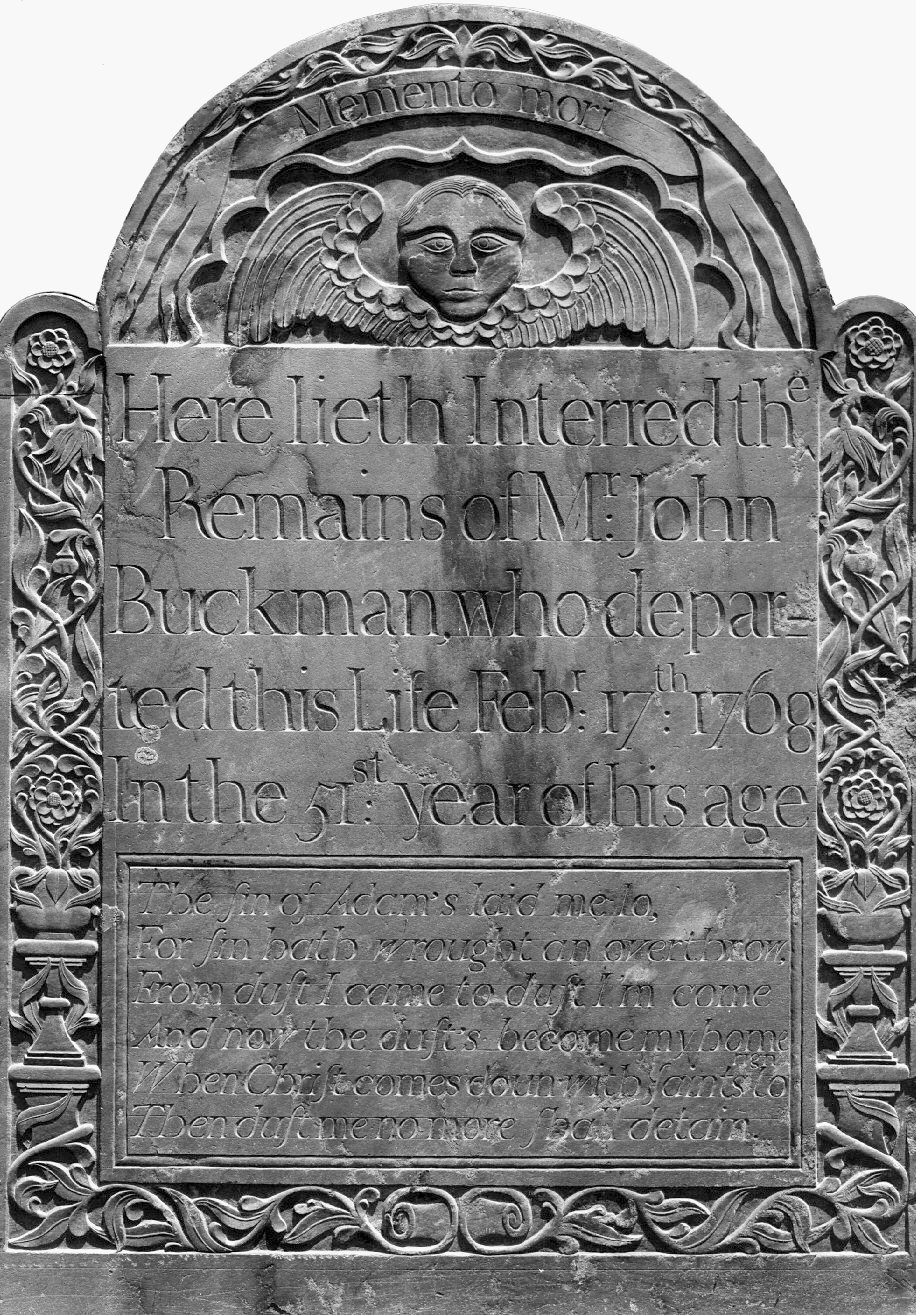 Memento mori
Here lieth Interred the
Remains of Mr: John
Buckman, who depar-
ted this Life Febr: 17th: 1768
In the 51st: year of his age
The ſin of Adam's laid me lo,
For ſin hath wrought an overthrow,
From duſt I came to duſt I in come
And now the duſt's become my home
When Chriſt comes doun with ſaints to regn
Then duſt me no more ſhall detain.